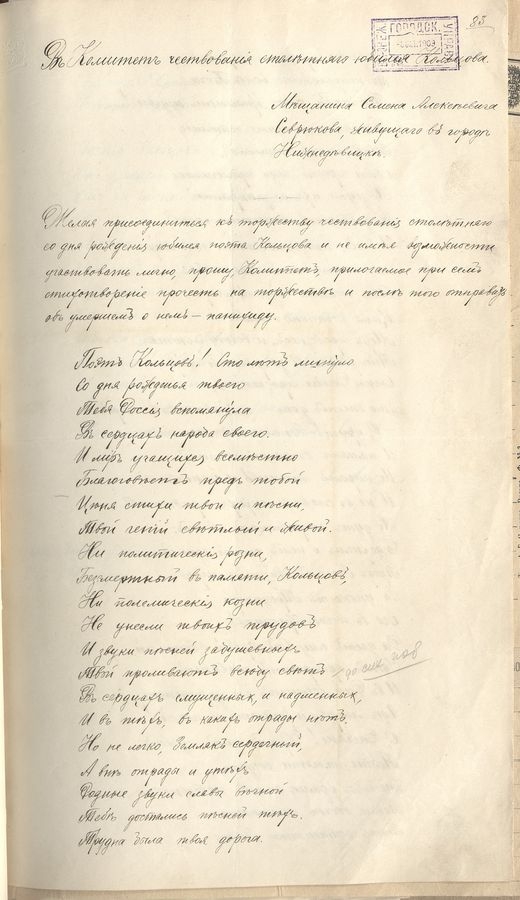 83
ГОРОДСК.
УПРАВА
1909
Въ Комитетъ чествованія столѣтняго юбилея Кольцова.
Мѣщанина Семена Алексѣевича
Севрюкова, живущаго въ городѣ
Нижнедѣвицкѣ.
Желая присоединиться къ торжеству чествованія столѣтняго
со дня рожденія юбилея поэта Кольцова и не имѣя возможности
участвовать лично, прошу Комитетъ, прилогаемое при семъ
стихотвореніе прочесть на торжествѣ и послѣ того отправить
объ умершемъ о немъ — панихиду.
Поэтъ Кольцовъ! Сто лѣтъ минуло
Со дня рожденья твоего
Тебя Россія вспомянула
Въ сердцахъ народа своего.
И міръ учащихся всемѣстно
Благоговѣетъ предъ тобой
Цѣня стихи твои и пѣсни,
Твой геній свѣтлый и живой.
Ни политическія розни,
Безсмертный въ памяти, Кольцовъ,
Ни полемическія козни
Не унесли твоихъ трудовъ
И звуки пѣсней задушевныхъ
Твой проливаютъ всюду свѣтъ
до сих поръ
Въ сердцахъ смущенныхъ, и надменныхъ,
И въ тѣхъ, въ какихъ отрады нѣтъ.
Но не легко, Землякъ сердечный,
А внѣ отрады и утѣхъ
Родные звуки славы вѣчной
Тебѣ достались пѣсней тѣхъ.
Трудна была твоя дорога.